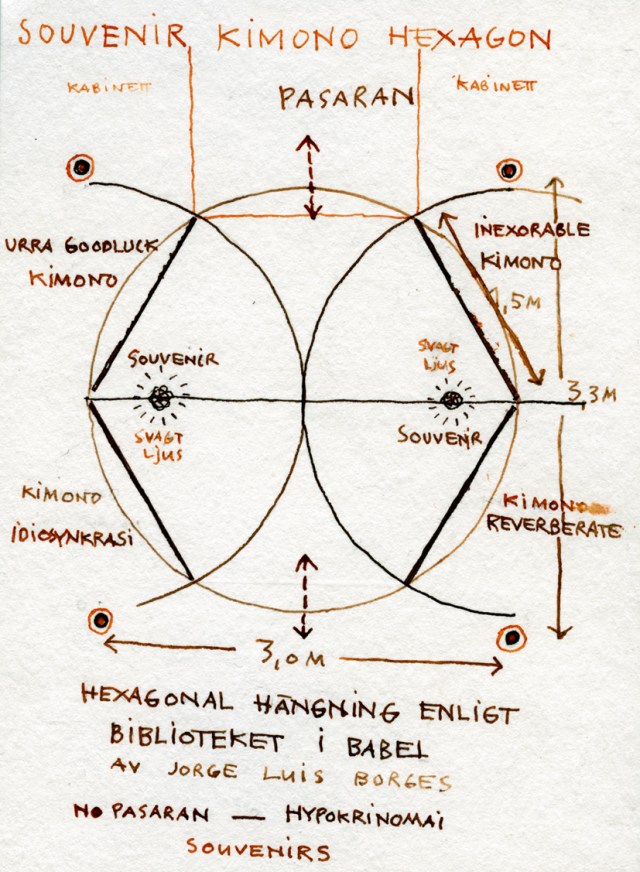 SOUVENIR KIMONO HEXAGON
KABINETT
PASARAN
KABINETT
URRA GOODLUCK
KIMONO
INEXORABLE
KIMONO
1,5M
SOUVENIR
SVAGT
LJUS
3,3M
SVAGT
LJUS
SOUVENIR
KIMONO
IDIOSYNKRASI
KIMONO
REVERBERATE
3,0M
HEXAGONAL HÄNGNING ENLIGT
BIBLIOTEKET I BABEL
AV JORGE LUIS BORGES
NO PASARAN — HYPOKRINOMAI
SOUVENIRS